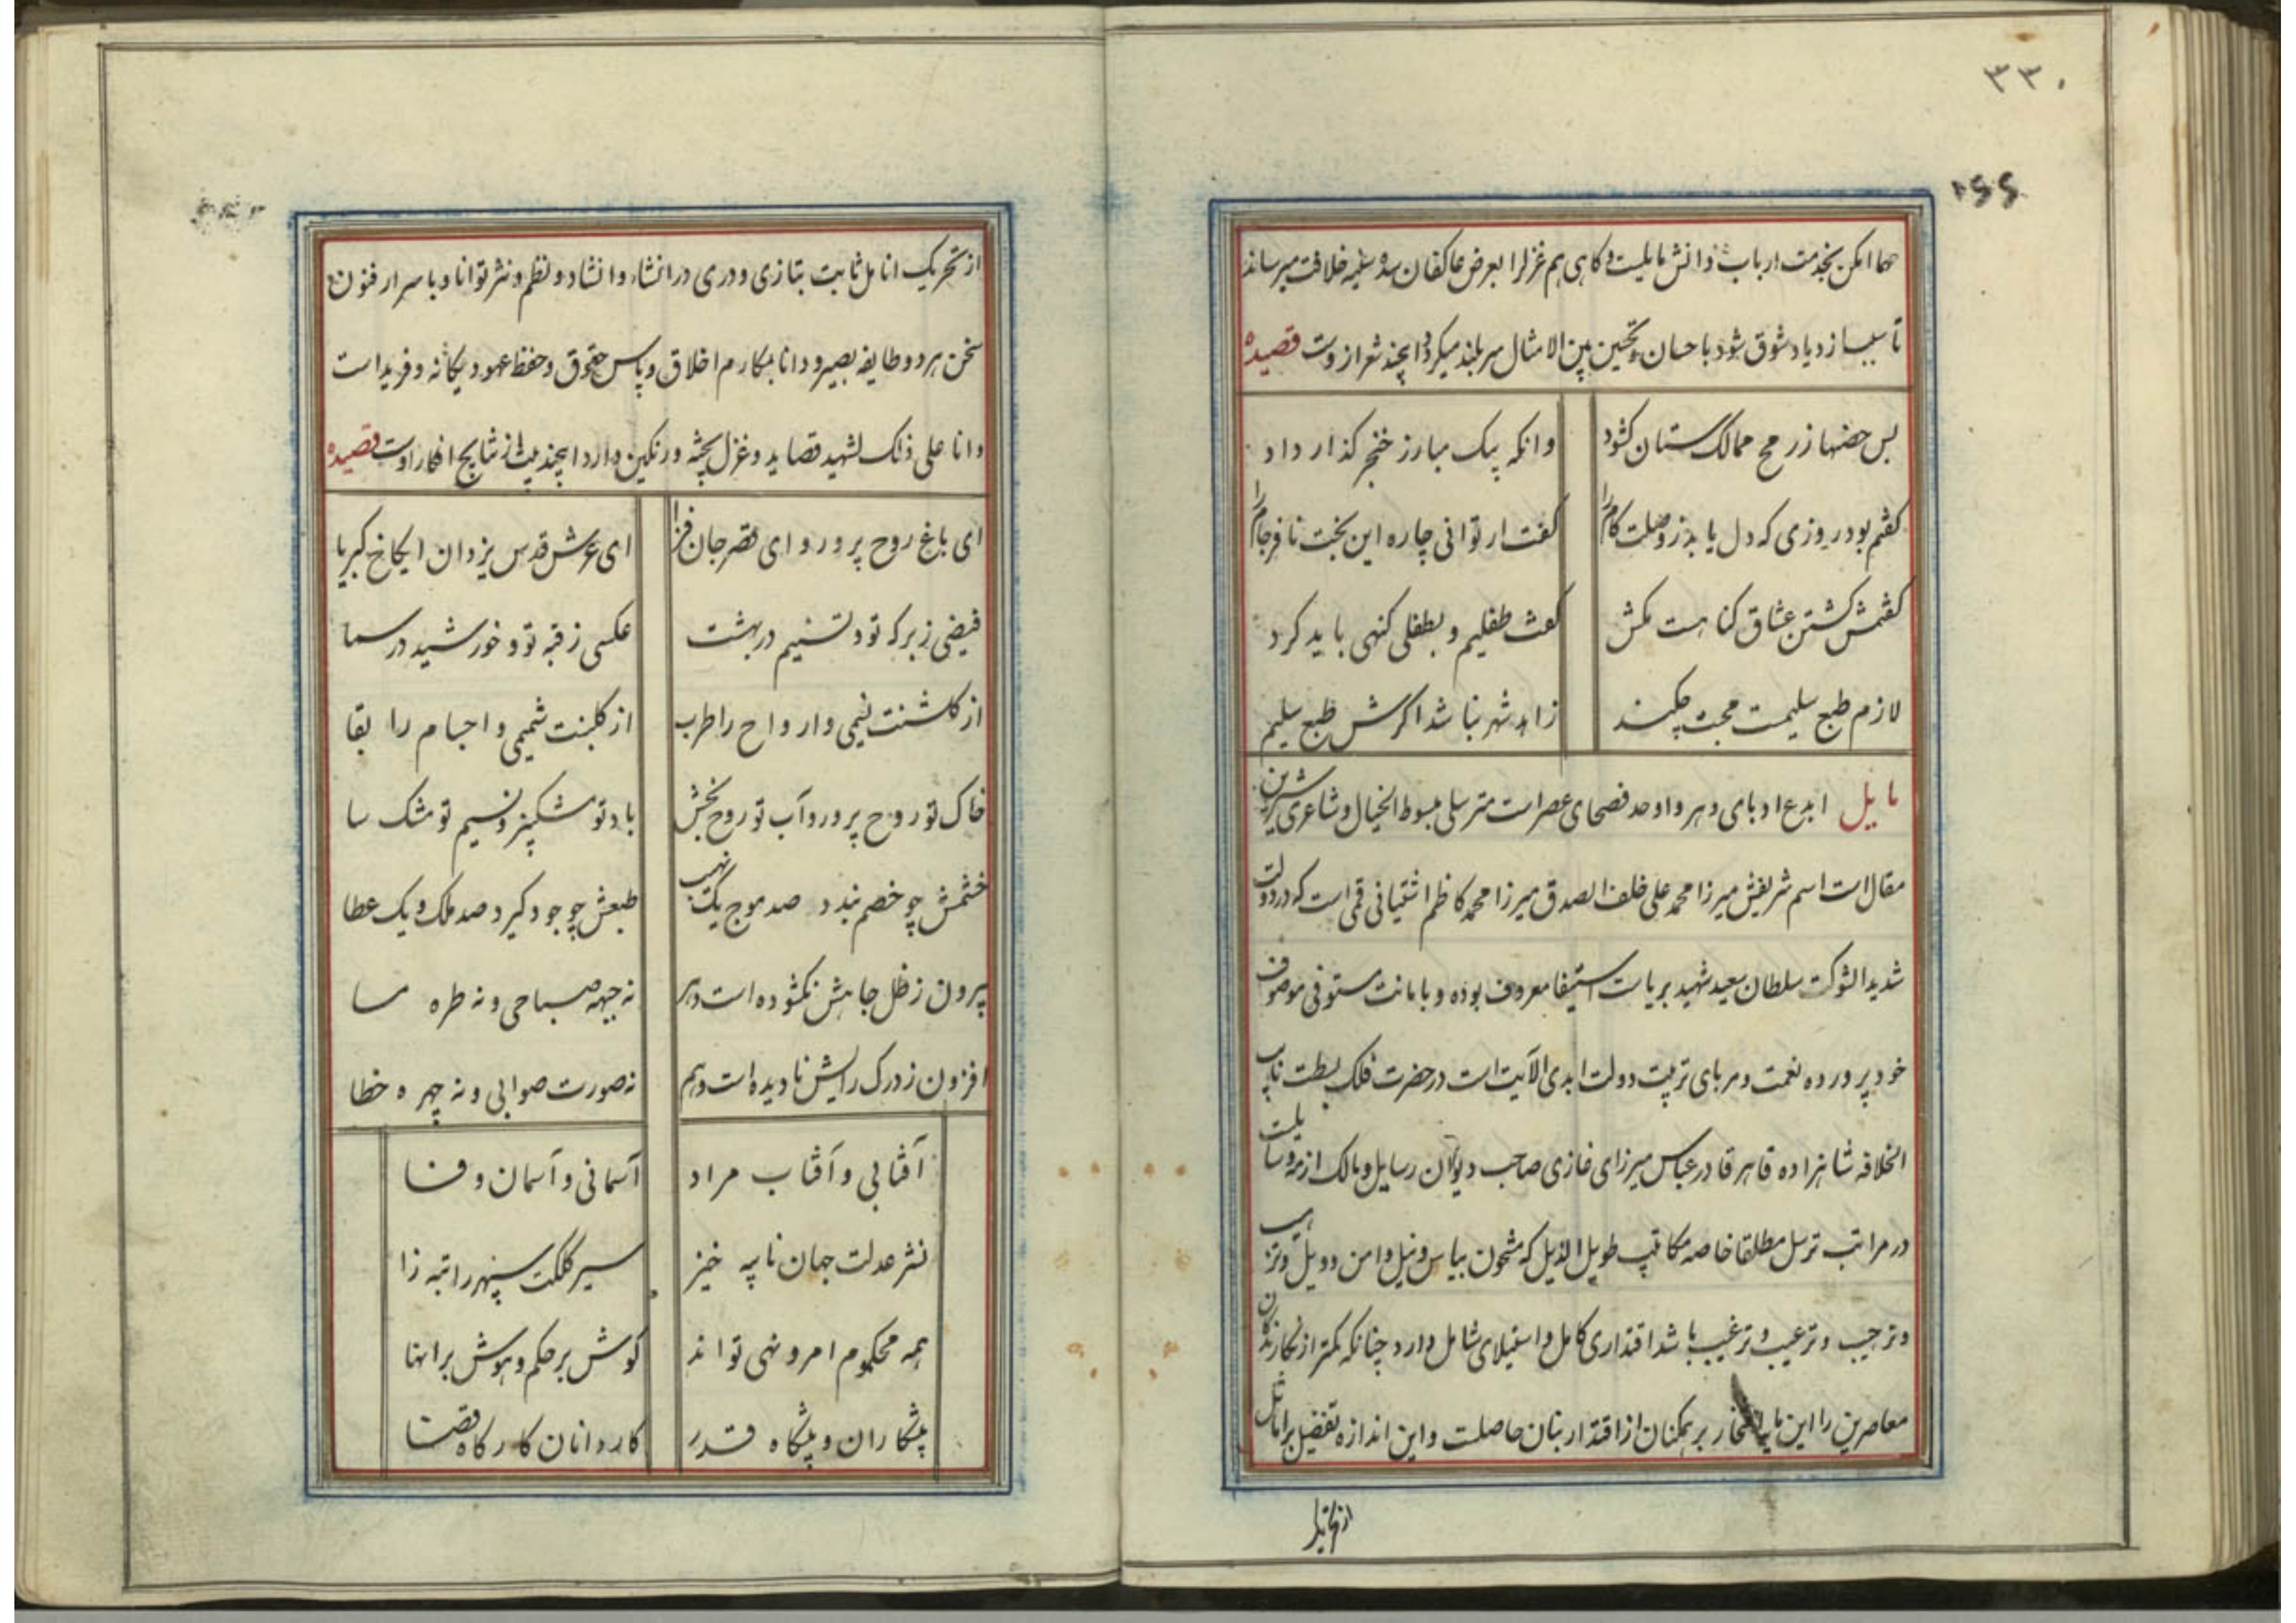 ۳۳۰
حما امکن بخدمت ارباب دانش مایلست و کاهی هم غزلرا بعرض عاکفان سده سلیمه خلافت میرساند
تا سبب ازدیاد شوق شود باحسان و تحسین بین الامثال سربلند میکردد اینچند شعر از وست قصیده
بس حصنها ز رمح ممالک ستان کشود وانکه پیک مبارز خنجر کذار داد
کفتم بود روزی که دل یابد ز وصلت کام را کفت ار توانی چاره این بخت نافرجام را
کفتمش کشتن عشاق کناهست مکش کفت طفلیم و بطفلی کنهی باید کرد
لازم طبع سلیمست محبت چکند زاهد شهر بنا شد اکرش طبع سلیم
مایل ابدع ادبای دهر و اوحد فصحای عصر است مترسلی مبسوط الخیال و شاعری شیرین
مقال است اسم شریفش میرزا محمد علی خلف الصدق میرزا محمد کاظم اشتیانی قمی است که در دولت
شدید الشوکت سلطان سعید شهید بریاست استیفا معروف بوده و بامانت مستوفی موصوف
خود پرورده نعمت و مربای تربیت دولت ابدی الآیت است در حضرت فلک بسطت نایب
الخلافه شاهزاده قاهر قادر عباس میرزای غازی صاحب دیوان رسایل و مالک ازمه
در مراتب ترسل مطلقا خاصه مکاتیب طویل الذیل که مشحون بیاس و نیل و امن و ویل
و ترحیب و ترعیب و ترغیب باشد اقتداری کامل و استیلای شامل دارد چنانکه کمتر از نکارندکان
معاصرین را این پایه افتخار بر همکنان از اقتدار بنان حاصلست و این اندازه تفضیل بر اماثل
از تحریک
از تحریک انامل ثابت بتازی و دری در انشاء و انشاد و نظم و نثر توانا و باسرار فنون
سخن هر دو طایفه بصیر و دانا بمکارم اخلاق و پاس حقوق و حفظ عهود یکانه و فرید است
وانا علی ذلک لشهید قصاید و غزل پخته و رنکین دارد اینچند بیت از نتایج افکار اوست قصیده
ای باغ روح پرور و ای قصر جان فزا ای عرش قدس یزدان ای کاخ کبریا
فیضی ز برکه تو و تسنیم در بهشت عکسی ز قبه تو و خورشید در سما
از کلشنت نسیمی و ارواح را طرب از کلبنت شمیمی و اجسام را بقا
خاک تو روح پرور و آب تو روح بخش باد تو مشکبیز و نسیم تو مشک سا
خشمش چو خصم بندد صد موج یک نهیب طبعش چو جود کیرد صد ملک و یک عطا
بیرون ز ظل جاهش نکشوده است دهر نه جبهه صباحی و نه طره مسا
افزون ز درک رایش نادیده است وهم نه صورت صوابی و نه چهره خطا
آفتابی و آفتاب مراد آسمانی و آسمان وفا
نشر عدلت جهان نایبه خیز سیر کلکت سپهر راتبه زا
همه محکوم امر و نهی تو اند کوش بر حکم و هوش بر انها
پیشکاران و پیشکاه قدر کاردانان کارکاه قضا